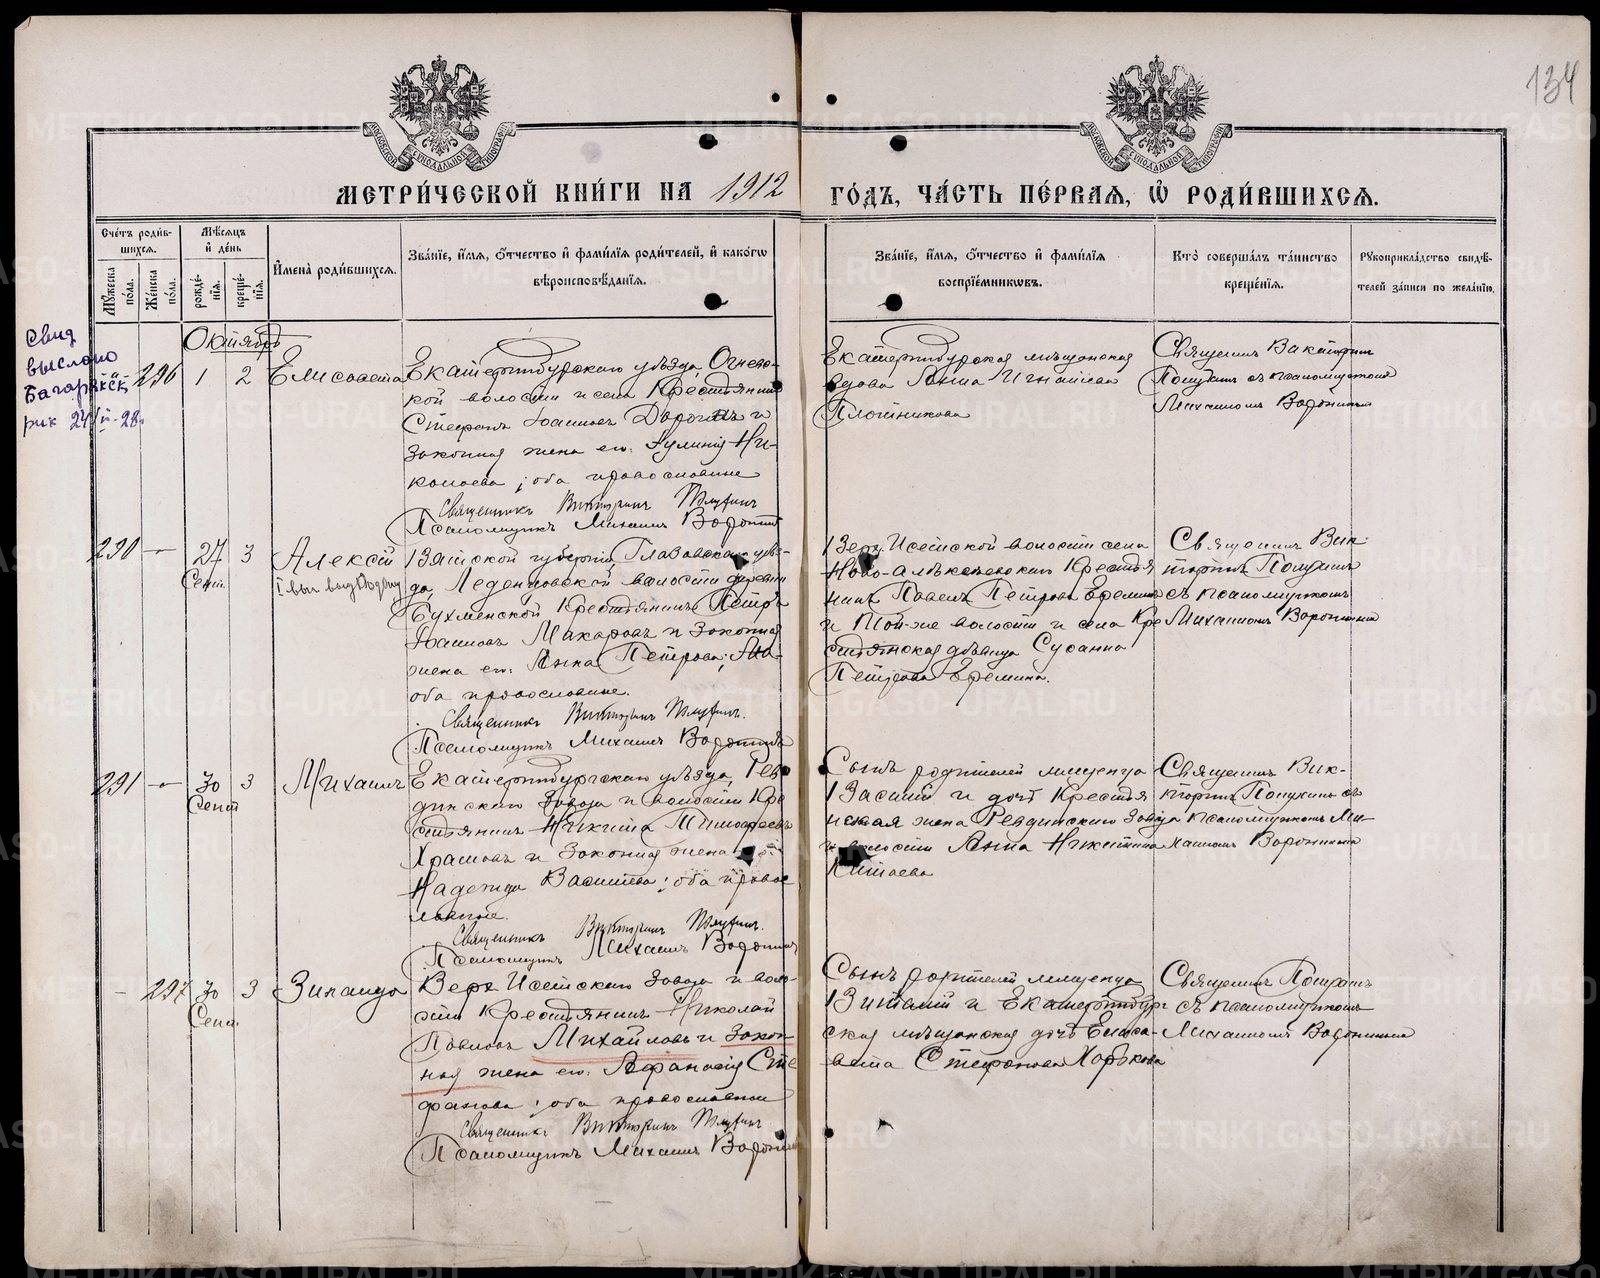 134
МЕТРИ́ЧЕСКОЙ КНИ́ГИ НА 1912
ГО́ДЪ, ЧА́СТЬ ПЕ́РВАЯ, Ѡ РОДИ́ВШИХСЯ.
Сче́тъ роди́в-
шихся.
Му́жеска по́ла.
Же́нска по́ла.
Мѣ́сяцъ
и́ де́нь
рожде́нїя.
креще́нїя.
И҆мена̀ роди́вшихся.
Зва́нїе, и҆́мя, ѻ҆́тчество и҆ фами́лїя роди́телей, и҆ како́гѡ
вѣроисповѣ́данїя.
Зва́нїе, и҆́мя, ѻ҆́тчество и҆ фами́лїя
воспрїе́мникѡвъ.
Кто̀ соверша́лъ та́инство
креще́нїя.
Рукоприкла́дство свидѣ́-
телей за́писи по жела́нїю.
Свид
выслано
Багарякск
рик 24/II-28.
Октябрь
296 1 2 Елисавета
Екатеринбургскаго уѣзда, Огнев-
ской волости и села Крестьянинъ
Стефанъ Іоанновъ Дорогинъ и
законная жена его Акулина Ни-
колаева; оба православные
Священникъ Викторинъ
Псаломщикъ Михаилъ Воронинъ
Екатеринбургская мѣщанская
вдова Анна Игнатіева
Плотникова
Священникъ Викторинъ
съ псаломщикомъ
Михаиломъ Воронинымъ
290 — 27 3 Алексій
Сент.
Вятской губерніи, Глазовскаго уѣз-
да, волости деревни
Крестьянинъ Петръ
Іоанновъ Макаровъ и законная
жена его Анна Петрова;
оба православные.
Священникъ Викторинъ
Псаломщикъ Михаилъ Воронинъ
Верх-Исетской волости села
Ново-Алексѣевскаго Крестья
нинъ Павелъ Петровъ Еремин
и той-же волости и села Кре
стьянская дѣвица Сусанна
Петрова Еремина.
Священникъ Вик
торинъ
съ псаломщикомъ
Михаиломъ Воронинымъ
291 — 30 3 Михаилъ
Сент
Екатеринбургскаго уѣзда, Рев
динскаго Завода и волости Кре
стьянинъ Никита Тимофеевъ
Храмовъ и законная жена его
Надежда Васильева; оба правос
лавные.
Священникъ Викторинъ
Псаломщикъ Михаилъ Воронинъ
Сынъ родителей младенца
Василій и дочь Крестья
нская жена Ревдинскаго Завода
и волости Анна Никитина
Китаева
Священникъ Вик-
торинъ съ
псаломщикомъ Ми-
хаиломъ Воронинымъ
— 297 30 3 Зинаида
Сент.
Верх-Исетскаго Завода и воло-
сти Крестьянинъ Николай
Павловъ Михайловъ и закон
ная жена его Афанасія Сте
фанова; оба православные
Священникъ Викторинъ
Псаломщикъ Михаилъ Воронинъ
Сынъ родителей младенца
Виталій и Екатеринбург
ская мѣщанская дочь Елиса-
вета Стефанова Харькова
Священникъ
съ псаломщикомъ
Михаиломъ Воронинымъ